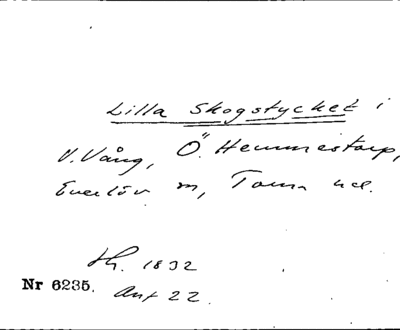 Lilla Skogstycket i
V. Vång, Ö. Hemmestorp,
Everlöv sn, Torna hd.
Sk. 1832
Nr 6235. Akt 22.